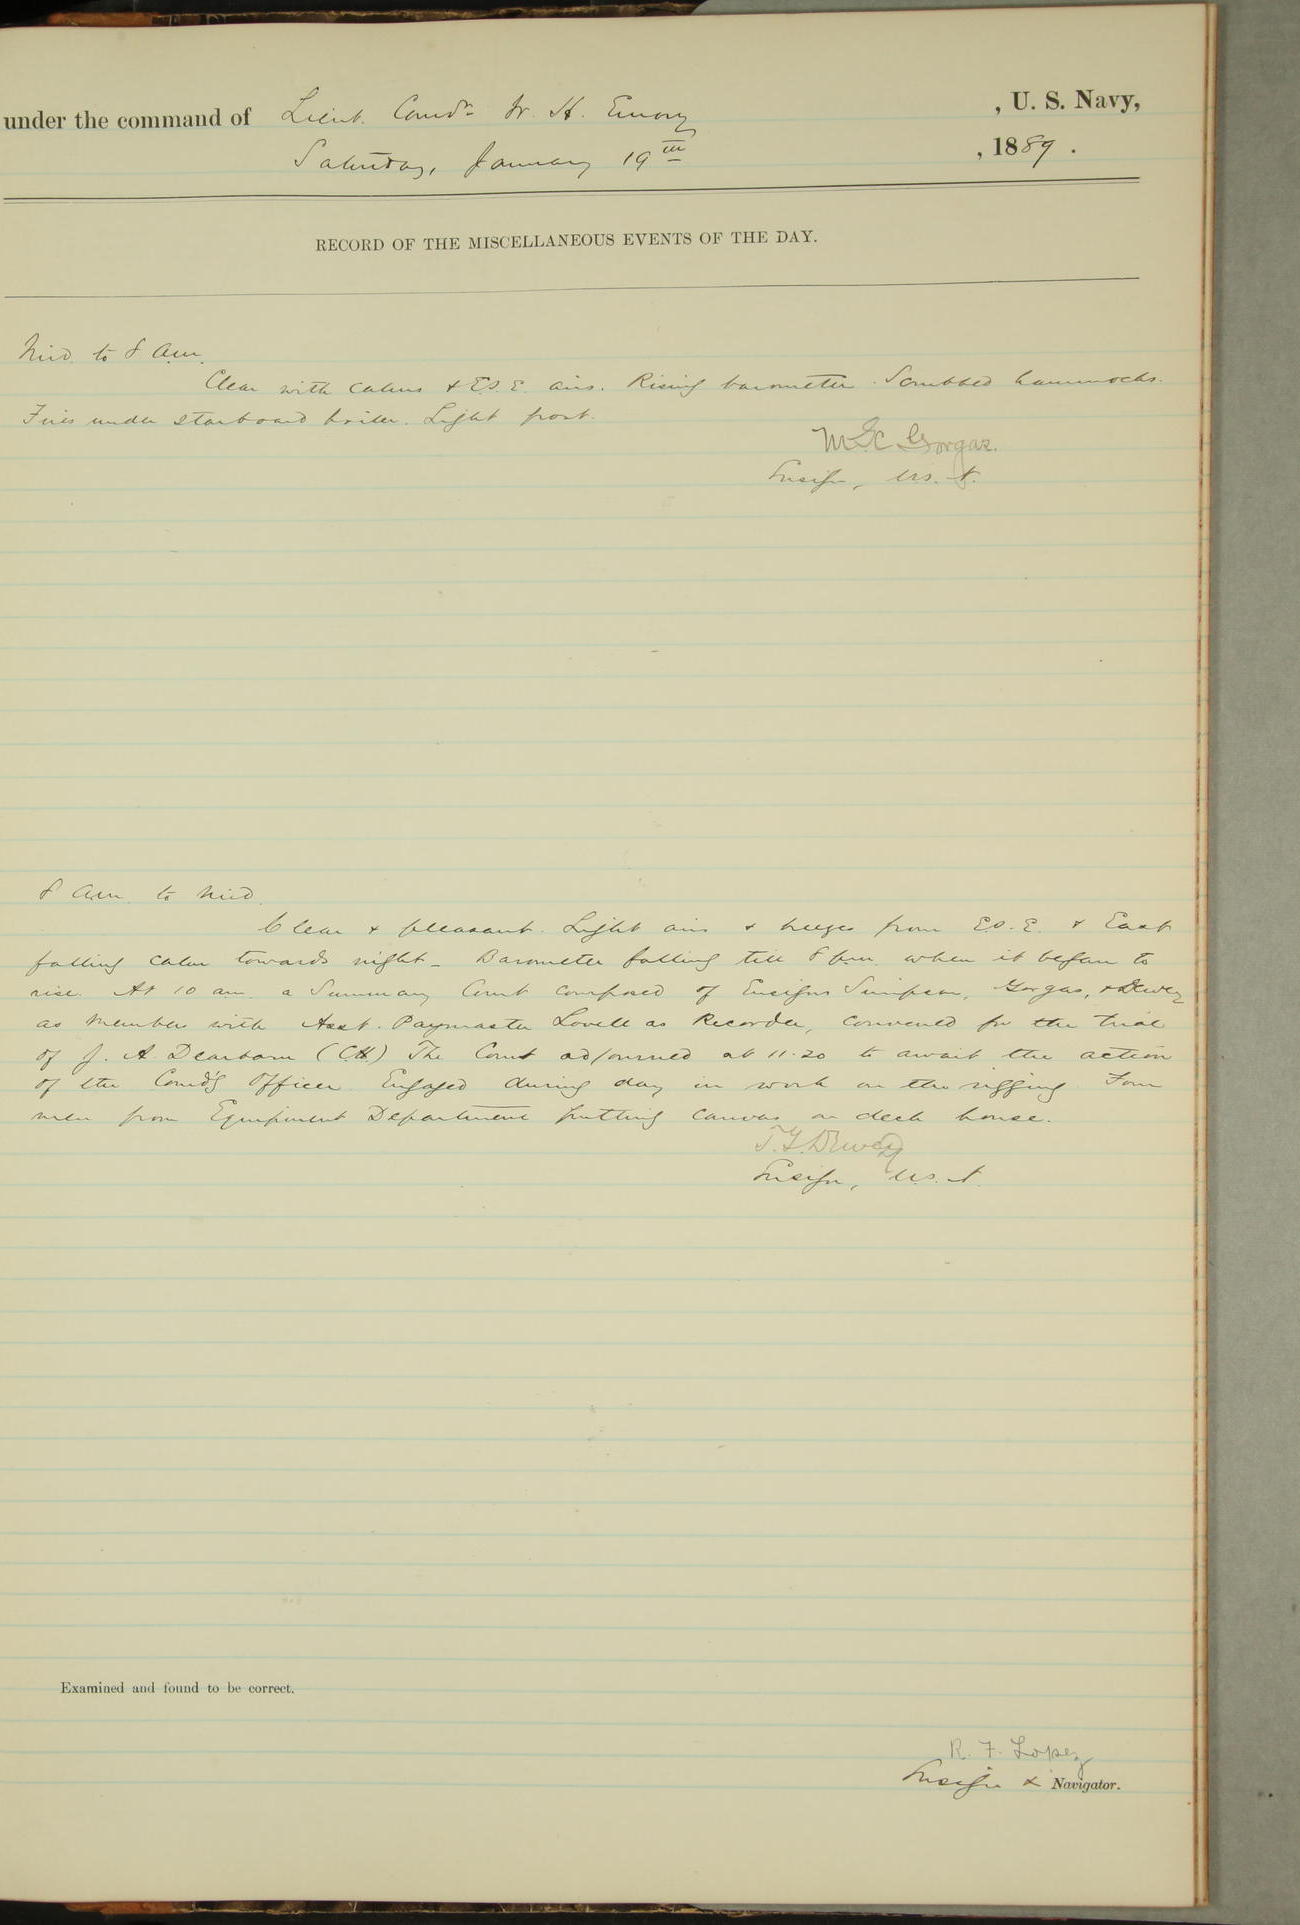 under the command of Lieut. Comdr W. H. Emory , U. S. Navy,
Saturday, January 19th , 1889 .
RECORD OF THE MISCELLANEOUS EVENTS OF THE DAY.
Mid. to 8 a.m.
Clear with calms & E.S.E. airs. Rising barometer. Scrubbed hammocks.
Fires under starboard boiler. Light frost.
M.C. Gorgas.
Ensign, U.S.N.
8 a.m. to Mid.
Clear & pleasant. Light airs & breezes from E.S.E. & East
falling calm towards night - Barometer falling till 8 p.m. when it began to
rise. At 10 am. a Summary Court composed of Ensigns Simpson, Gorgas, & Dewey
as members with Asst. Paymaster Lovell as Recorder, convened for the trial
of J. A. Dearborn (CH.) The Court adjourned at 11.20 to await the action
of the Comd'g Officer. Engaged during day in work on the rigging. Four
men from Equipment Department putting canvas on deck house.
T.G. Dewey
Ensign, U.S.N.
Examined and found to be correct.
R. F. Lopez
Ensign & Navigator.